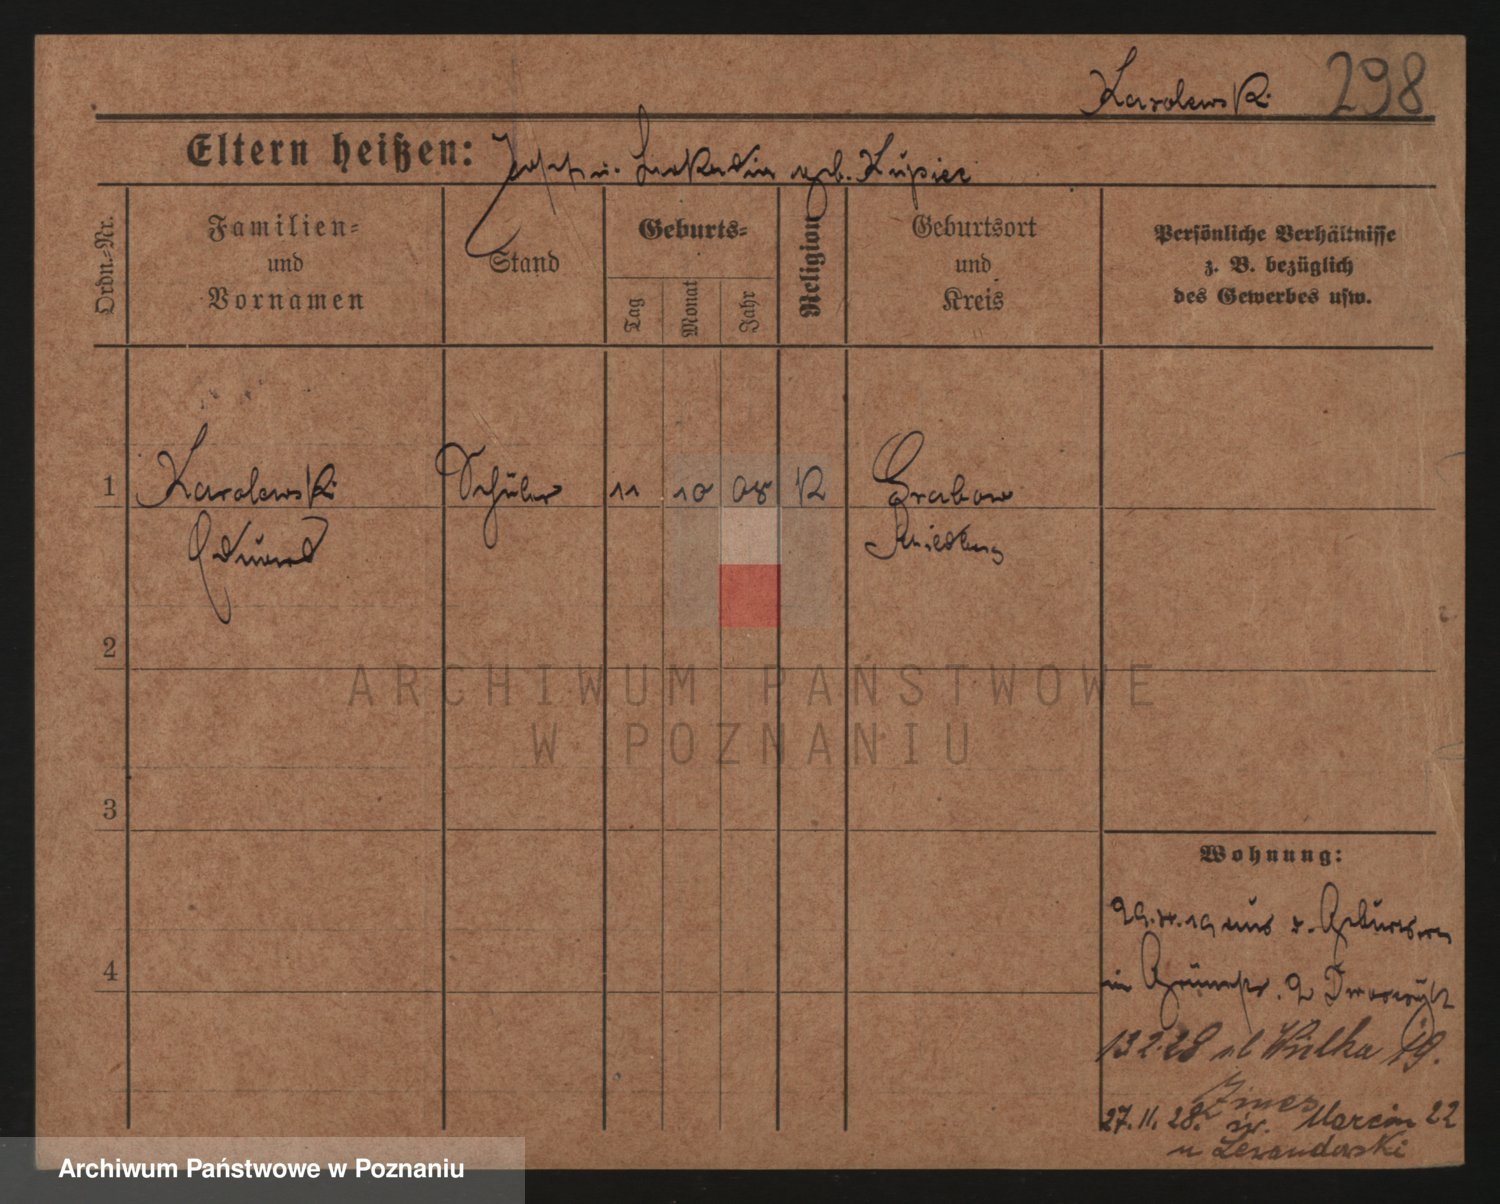 Karolewski 298
Eltern heißen: Josef u. Leokadia geb. Kupiec
Ordn.-Nr.
Familien-
und
Vornamen
Stand
Geburts-
Tag
Monat
Jahr
Religion
Geburtsort
und
Kreis
Persönliche Verhältnisse
z. B. bezüglich
des Gewerbes usw.
1 Karolewski Schüler 11 10 08 K Grabow
Eduard
2
3
4
Wohnung:
29. 19 aus
in 2
13 2. 28 ul Wielka 19.
27. 11. 28. św. Marcin 22
u Lewandowski
ARCHIWUM PAŃSTWOWE
W POZNANIU
Archiwum Państwowe w Poznaniu